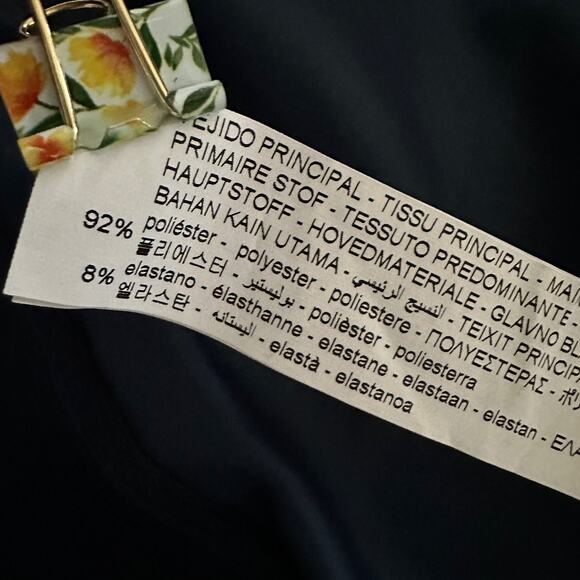 TEJIDO PRINCIPAL - TISSU PRINCIPAL - MAIN
PRIMAIRE STOF - TESSUTO PREDOMINANTE -
HAUPTSTOFF - HOVEDMATERIALE - GLAVNO
BAHAN KAIN UTAMA - النسيج الرئيسي - TEIXIT PRINCIPAL
92% poliéster - polyester - poliestere - ΠΟΛΥΕΣΤΕΡΑΣ -
폴리에스터 - بوليستير - polièster - poliesterra
8% elastano - élasthanne - elastane - elastaan - elastan -
엘라스탄 - اليستانه - elastà - elastanoa